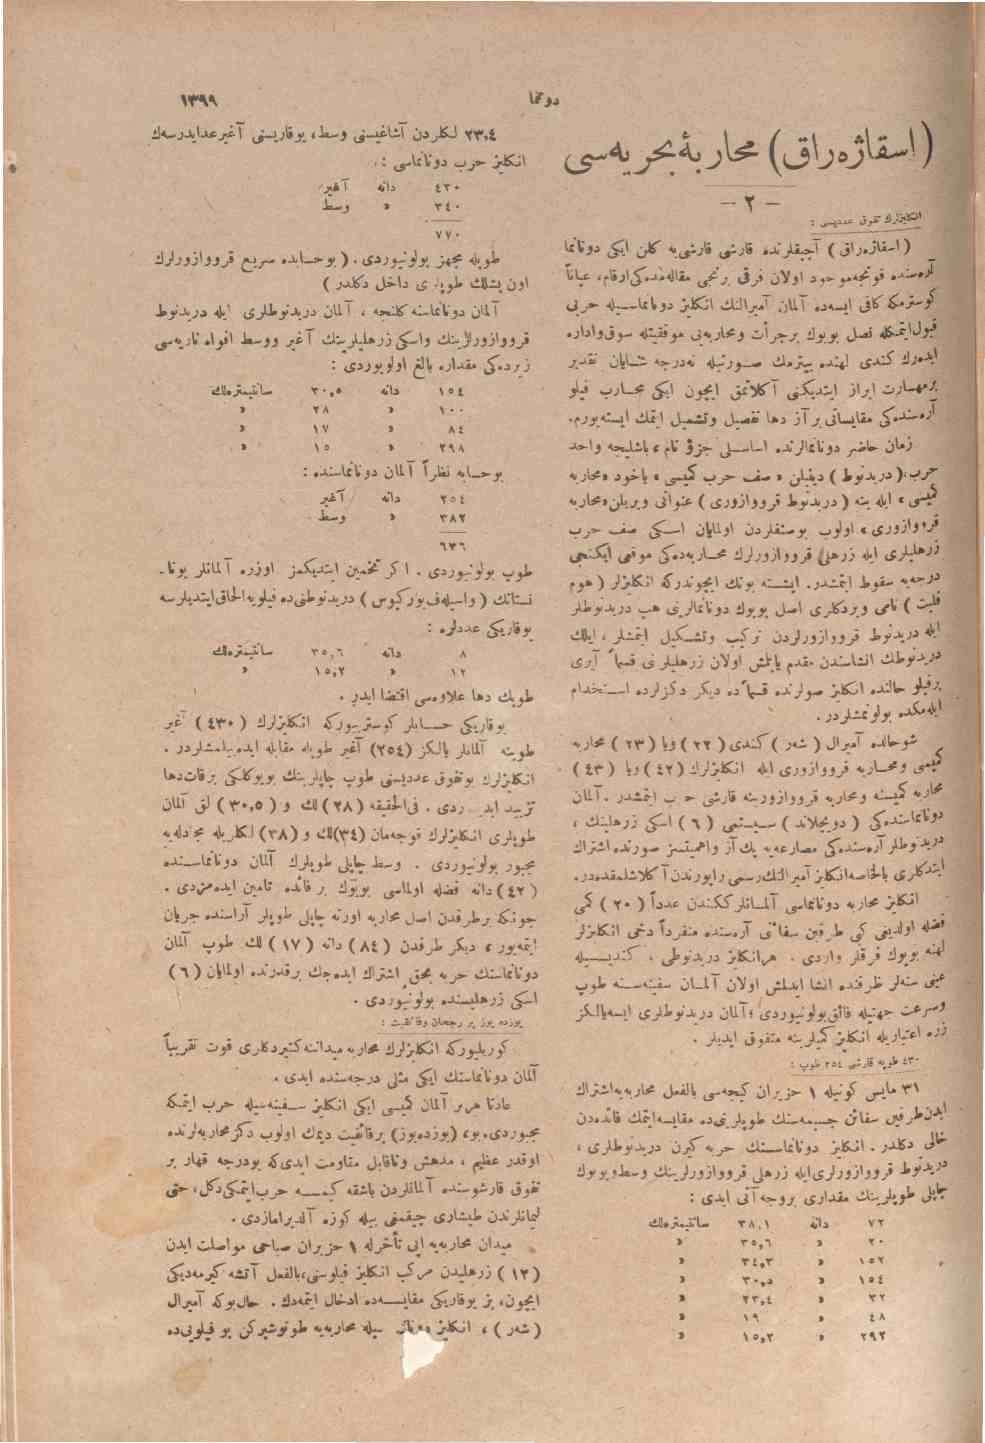 دوننما
١٣٩٩
(اسقاژه‌راق) محاربۀ بحریه‌سی
— ٢ —
انكلیزلرك تفوق عددیسی :
(اسقاژه‌راق) آچیقلرنده قارشی قارشی‌یه كلن ایكی دوننما
آره‌سنده قوتجه موجود اولان فرقی برنجی مقاله‌مده‌كی ارقام، عیاناً
كوسترمكه كافی ایسه‌ده آلمان آمیرالنك انكلیز دوننماسیله حربی
قبول ایتمكله نصل بویوك برجرأت ومحاربه‌یی موفقیتله سوق‌واداره
ایده‌رك كندی لهنده بیتیرمك صورتیله نه‌درجه شایان تقدیر
برمهارت ابراز ایتدیكنی آكلاتمق ایچون ایكی محارب فیلو
آره‌سنده‌كی مقایساتی برآز دها تفصیل وتشمیل ایتمك ایسته‌یورم.
زمان حاضر دوننمالرنده اساسلی جزؤ تام، باشلیجه واحد
حرب، (دریدنوط) دینیلن «صف حرب كمیسی» یاخود «محاربه
كمیسی» ایله ینه (دریدنوط قرووازوری) عنوانی ویریلن «محاربه
قرووازوری» اولوب بوصنفلردن اولمایان اسكی صف حرب
زرهلیلری ایله زرهلی قرووازورلرك محاربه‌ده‌كی موقعی ایكنجی
درجه‌یه سقوط ایتمشدر. ایشته بونك ایچوندركه انكلیزلر (هوم
فلیت) نامی ویردكلری اصل بویوك دوننمالرینی هپ دریدنوطلر
ایله دریدنوط قرووازورلردن تركیب وتشكیل ایتمشلر، ایلك
دریدنوطك انشاسندن مقدم یاپلمش اولان زرهلیلرنی قسماً آیری
برفیلو حالنده انكلیز صولرنده قسماً ده دیكر دكزلرده استخدام
ایله‌مكده بولونمشلردر.
شوحالده آمیرال (شه‌ر) كندی (٢٢) ویا (٢٣) محاربه
كمیسی ومحاربه قرووازوری ایله انكلیزلرك (٤٢) ویا (٤٣)
محاربه كمیسنه ومحاربه قرووازورینه قارشی حرب ایتمشدر. آلمان
دوننماسنده‌كی (دویچلاند) سیستمی (٦) اسكی زرهلینك،
دریدنوطلر آره‌سنده‌كی مصارعه‌یه پك آز واهمیتسز صورتده اشتراك
ایتدكلری بالخاصه انكلیز آمیرالنك رسمی راپورندن آكلاشلمقده‌در.
انكلیز محاربه دوننماسی آلمانلركندن عدداً (٢٠) كمی
فضله اولدیغی كبی طرفین سفائنی آره‌سنده منفرداً دخی انكلیزلر
لهنه بویوك فرقلر واردی. هر انكلیز دریدنوطی، كندیسیله
عینی سنه‌لر ظرفنده انشا ایدلمش اولان آلمان سفینه‌سنه طوپ
وسرعت جهتیله فائق بولونیوردی؛ آلمان دریدنوطلری ایسه یالكز
زره اعتباریله انكلیز كمیلرینه متفوق ایدیلر.
٤٣٠ طوپه قارشی ٢٥٤ طوپ :
٣١ مایس كونیله ١ حزیران كیجه‌سی بالفعل محاربه‌یه اشتراك
ایدن طرفین سفائن جسیمه‌سنك طوپلرینی‌ده مقایسه ایتمك فائده‌دن
خالی دكلدر. انكلیز دوننماسنك حربه كیرن دریدنوطلری،
دریدنوط قرووازورلری ایله زرهلی قرووازورلرینك وسط وبویوك
چاپلی طوپلرینك مقداری بروجه آتی ایدی :
٧٢ دانه ٣٨,١ سانتیمتره‌لك
٢٠ » ٣٥,٦ »
١٥٢ » ٣٤,٣ »
١٥٤ » ٣٠,٥ »
٣٢ » ٢٣,٤ »
٤٨ » ١٩ »
٢٩٢ » ١٥,٢ »
٢٣,٤ لكلردن آشاغیسنی وسط، یوقاریسنی آغیر عدایدرسه‌ك
انكلیز حرب دوننماسی :
٤٣٠ دانه آغیر
٣٤٠ » وسط
٧٧٠
طوپله مجهز بولونیوردی. (بوحسابده سریع قرووازورلرك
اون بشلك طوپلری داخل دكلدر)
آلمان دوننماسنه كلنجه، آلمان دریدنوطلری ایله دریدنوط
قرووازورلرینك واسكی زرهلیلرینك آغیر ووسط افواه ناریه‌سی
زیرده‌كی مقداره بالغ اولویوردی :
١٥٤ دانه ٣٠,٥ سانتیمتره‌لك
١٠٠ » ٢٨ »
٨٤ » ١٧ »
٢٩٨ » ١٥ »
بوحسابه نظراً آلمان دوننماسنده :
٢٥٤ دانه آغیر
٣٨٢ » وسط
٦٣٦
طوپ بولونیوردی. اكر تخمین ایتدیكمز اوزره آلمانلر یونا-
نستانك (واسیله‌ف یورکیوس) دریدنوطنی‌ده فیلویه الحاق ایتدیلرسه
یوقاریكی عددلره :
٨ دانه ٣٥,٦ سانتیمتره‌لك
١٢ » ١٥,٢ »
طوپك دها علاوه‌سی اقتضا ایدر.
یوقاریكی حسابلر كوستریوركه انكلیزلرك (٤٣٠) آغیر
طوپنه آلمانلر یالكز (٢٥٤) آغیر طوپله مقابله ایده‌بیلمشلردر.
انكلیزلرك بوتفوق عددیسنی طوپ چاپلرینك بویوكلكی برقات دها
تزیید ایدیوردی. فی‌الحقیقه (٢٨) لك و (٣٠,٥) لق آلمان
طوپلری انكلیزلرك قوجه‌مان (٣٤) لك و (٣٨) لكلریله مجادله‌یه
مجبور بولونیوردی. وسط چاپلی طوپلرك آلمان دوننماسنده
(٤٢) دانه فضله اولماسی بویوك بر فائده تأمین ایده‌مزدی.
چونكه برطرفدن اصل محاربه اورته چاپلی طوپلر آراسنده جریان
ایتمه‌یور، دیكر طرفدن (٨٤) دانه (١٧) لك طوپ آلمان
دوننماسنك حربه بحق اشتراك ایده‌جك برقدرتده اولمایان (٦)
اسكی زرهلیسنده بولونیوردی.
یوزده یوز بر رجحان وفائقیت :
كوریلیوركه انكلیزلرك محاربه میداننه كتیردكلری قوت تقریباً
آلمان دوننماسنك ایكی مثلی درجه‌سنده ایدی.
عادتا هربر آلمان كمیسی ایكی انكلیز سفینه‌سیله حرب ایتمكه
مجبوردی. بو، (یوزده یوز) برفائقیت دیمك اولوب دكز محاربه‌لرنده
اوقدر عظیم، مدهش وناقابل مقاومت ایدی‌كه بودرجه قهار بر
تفوق قارشوسنده آلمانلردن باشقه كیمسه حرب ایتمكی دكل، حتی
لیمانلرندن طیشاری چیقمغی بیله كوزه آلدیرامازدی.
میدان محاربه‌یه ایی تأخرله ١ حزیران صباحی مواصلت ایدن
(١٢) زرهلیدن مركب انكلیز فیلوسنی، بالفعل آتشه كیرمه‌دیكی
ایچون، بز یوقاریكی مقایسه‌ده ادخال ایتمه‌دك. حال‌بوكه آمیرال
(شه‌ر)، انكلیز سیله محاربه‌یه طوتوشیركن بو فیلویی‌ده